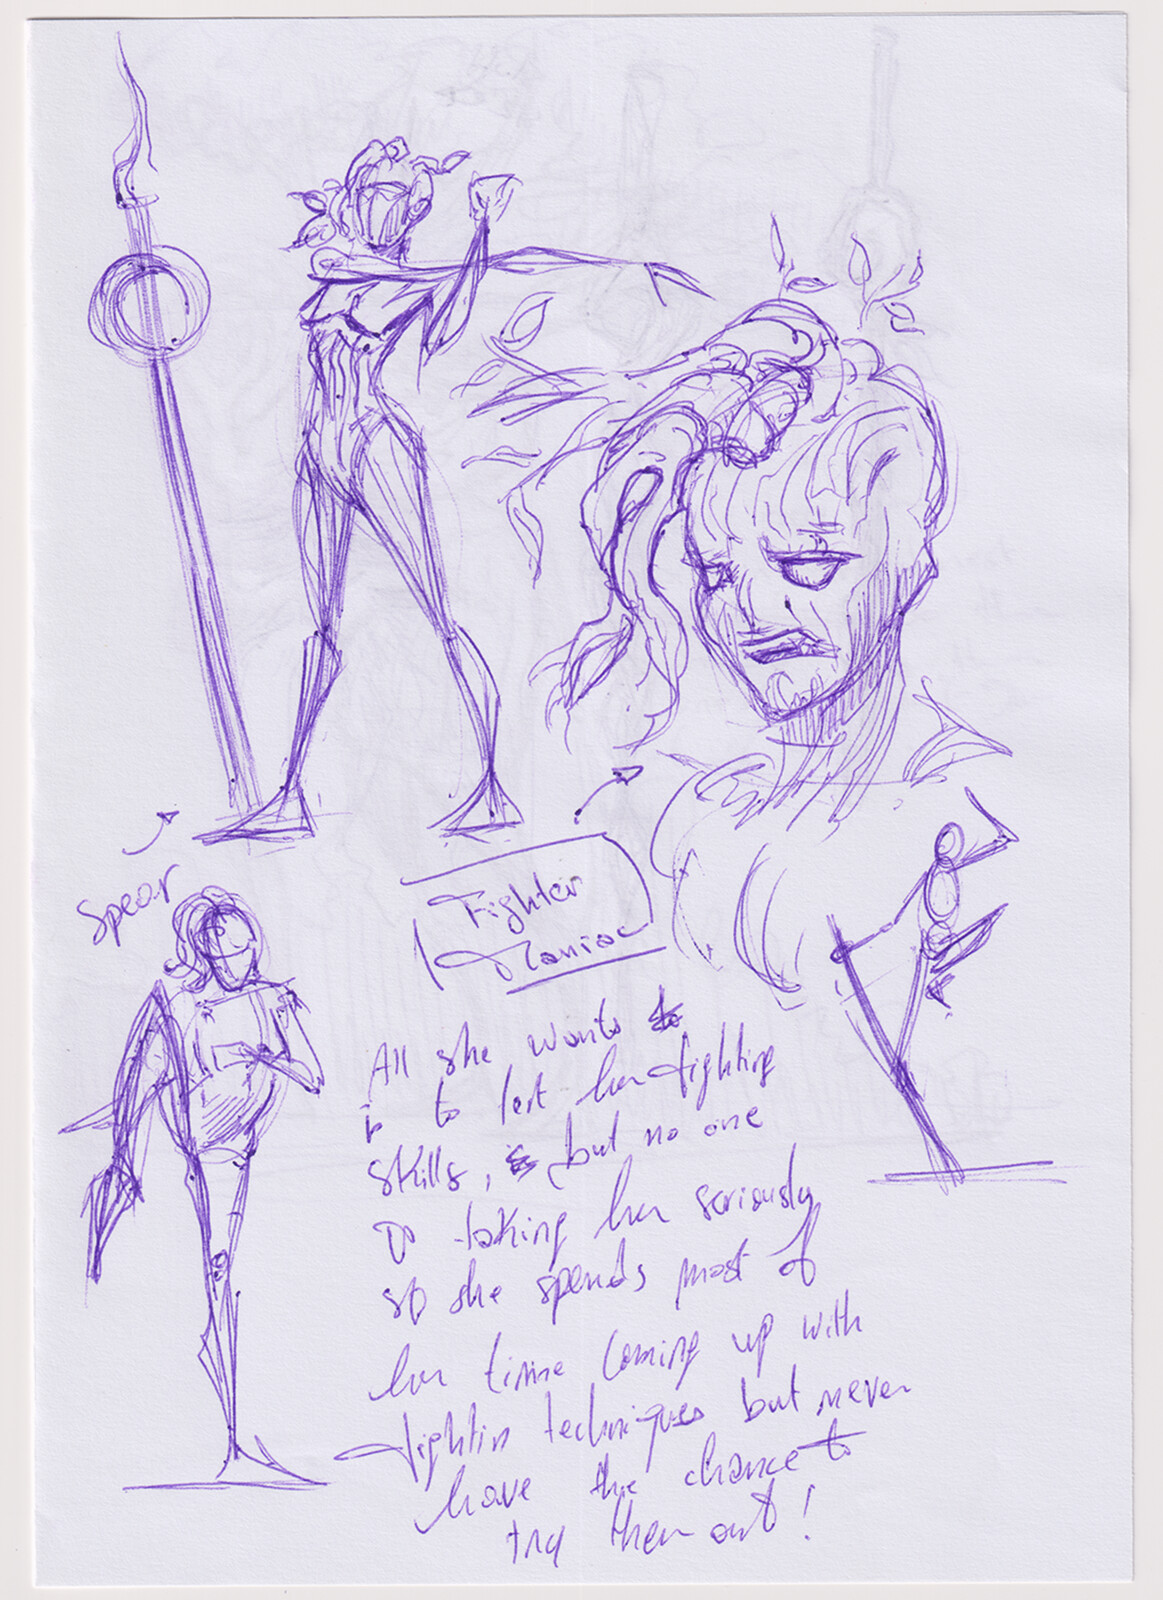 Spear
Fighter
Maniac
All she wants
is to test her fighting
skills, but no one
is taking her seriously
so she spends most of
her time coming up with
fightin techniques but never
have the chance to
try them out!